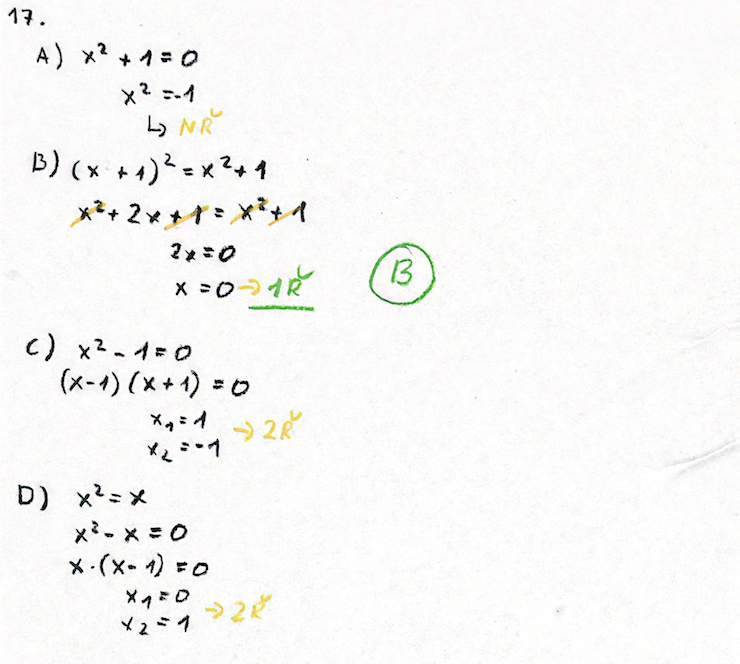 17.
A) x² + 1 = 0
x² = -1
↳ NŘ
B) (x + 1)² = x² + 1
x² + 2x + 1 = x² + 1
2x = 0
x = 0 → 1Ř
B
C) x² - 1 = 0
(x-1) (x + 1) = 0
x₁ = 1
x₂ = -1 → 2Ř
D) x² = x
x² - x = 0
x·(x - 1) = 0
x₁ = 0
x₂ = 1 → 2Ř